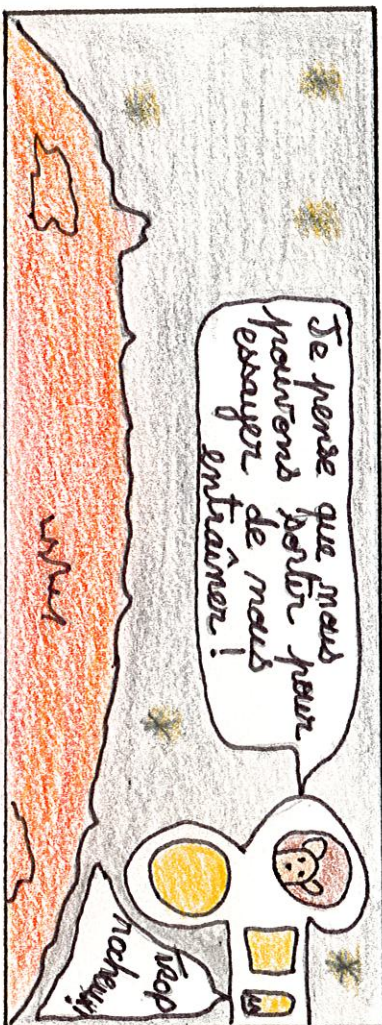 Je pense que nous
pouvons sortir pour
essayer de nous
entraîner !
Trop
rocheux !